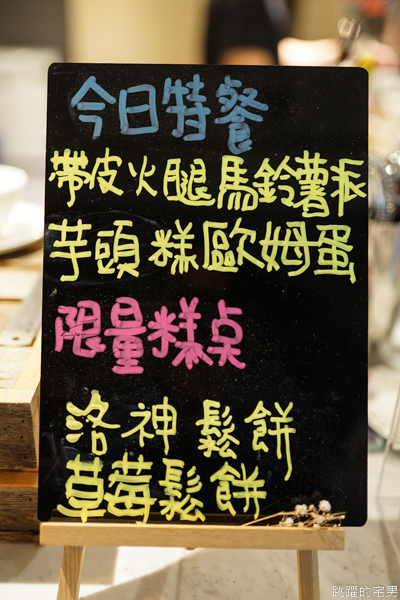 今日特餐
帶皮火腿馬鈴薯派
芋頭糕歐姆蛋
限量糕点
洛神鬆餅
草莓鬆餅
跳躍的宅男